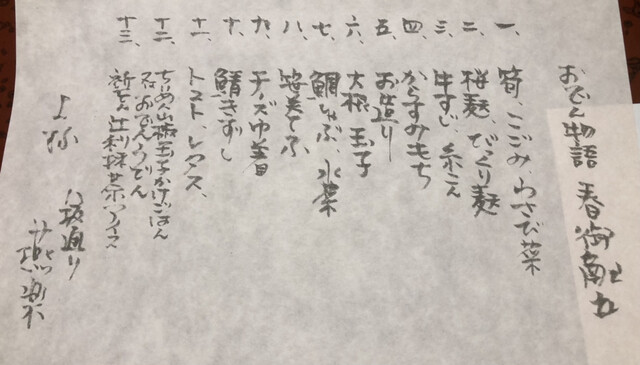 おでん物語 春御献立
一、筍、こごみ、わさび菜
二、桜麩、びっくり麩
三、牛すじ、糸こん
四、からすみもち
五、お造り
六、大根、玉子
七、鯛しゃぶ、水菜
八、笹美てふ
九、チーズ巾着
十、鯖きずし
十一、トマト、レタス、
十二、ちりめん山椒玉子かけごはん
又、おでんうどん
十三、祇園辻利抹茶アイス
よ祢
八坂通り
燕楽